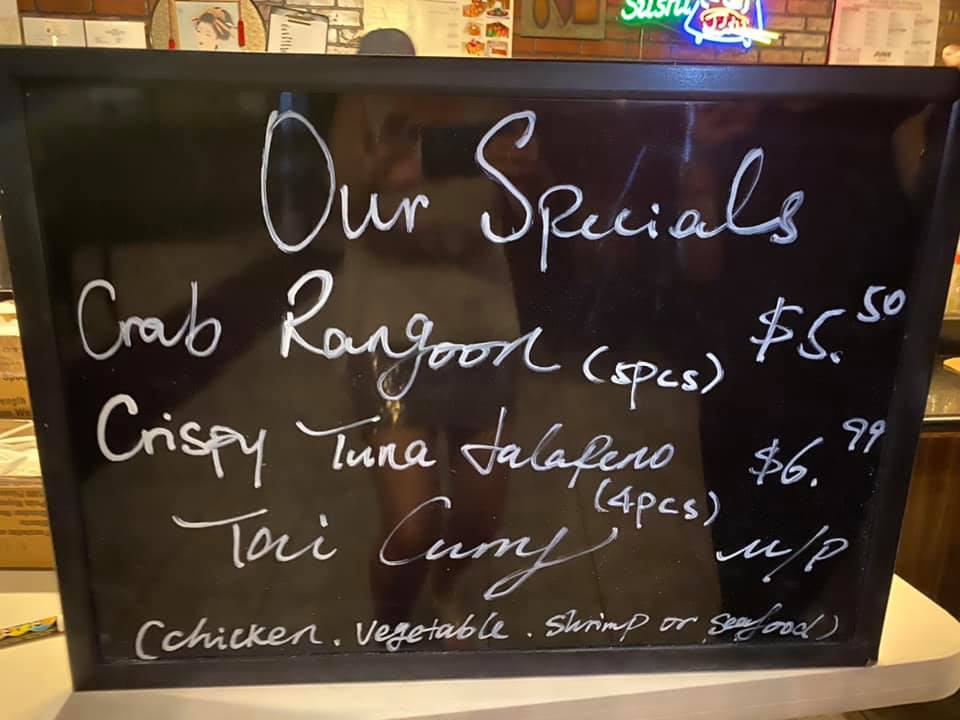 Sushi
Our Specials
Crab Rangoon (5pcs) $5.50
Crispy Tuna Jalapeno $6.99
(4pcs)
Tori Curry M/P
(chicken. Vegetable. Shrimp or Seafood)